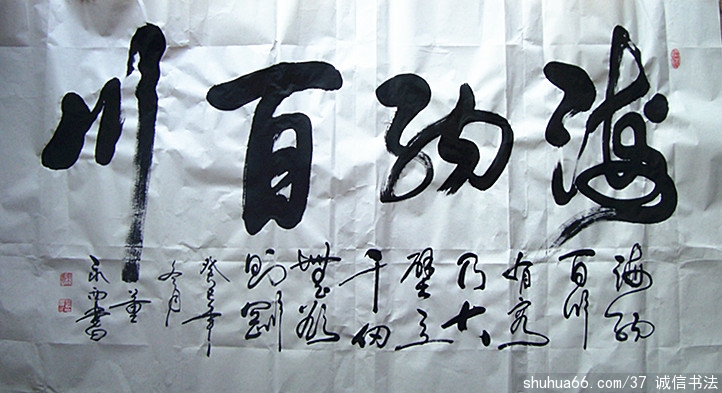 海纳百川
海纳
百川
有容
乃大
壁立
千仞
無欲
则剛
癸巳年
冬月
董
永西書
shuhua66.com/37 诚信书法